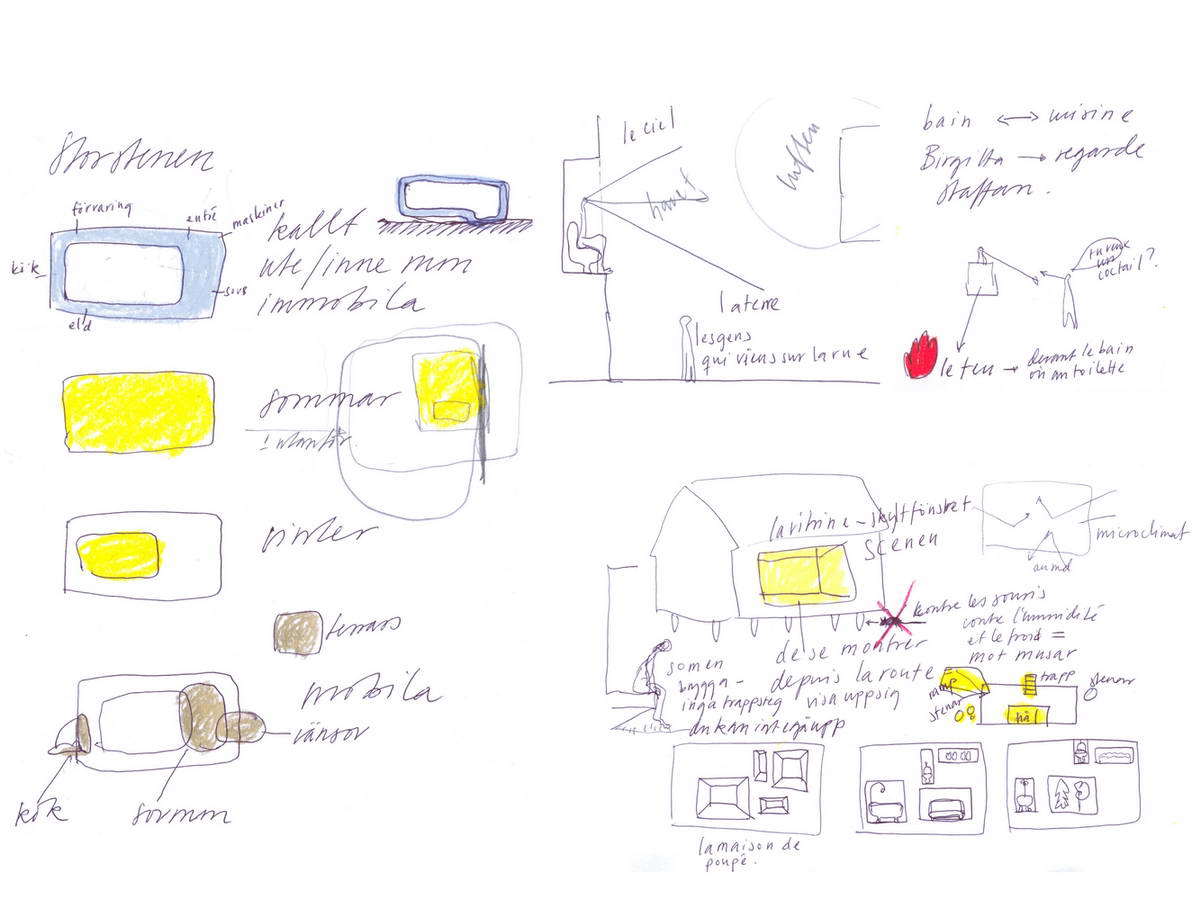 Storstenen
förvaring
entré
maskiner
kök
sovs
eld
kallt
ute/inne mm
immobila
sommar
vinter
terrass
mobila
vänsor
kök
sovmm
le ciel
havet
la terre
les gens
qui viens sur la rue
luften
bain ↔ cuisine
Birgitta → regarde
Staffan.
tu veux
un
coctail?
le feu → devant le bain
où an toilette
la vitrine – skyltfönstret
scenen
microclimat
au md
kontre les souris
contre l'umidité
et le froid =
mot musar
de se montrer
depuis la route
visa upp sig
som en
brygga –
inga trappsteg
du kan inte gå upp
ramp
stenar
trapp
stenar
hål
la maison de
poupé.